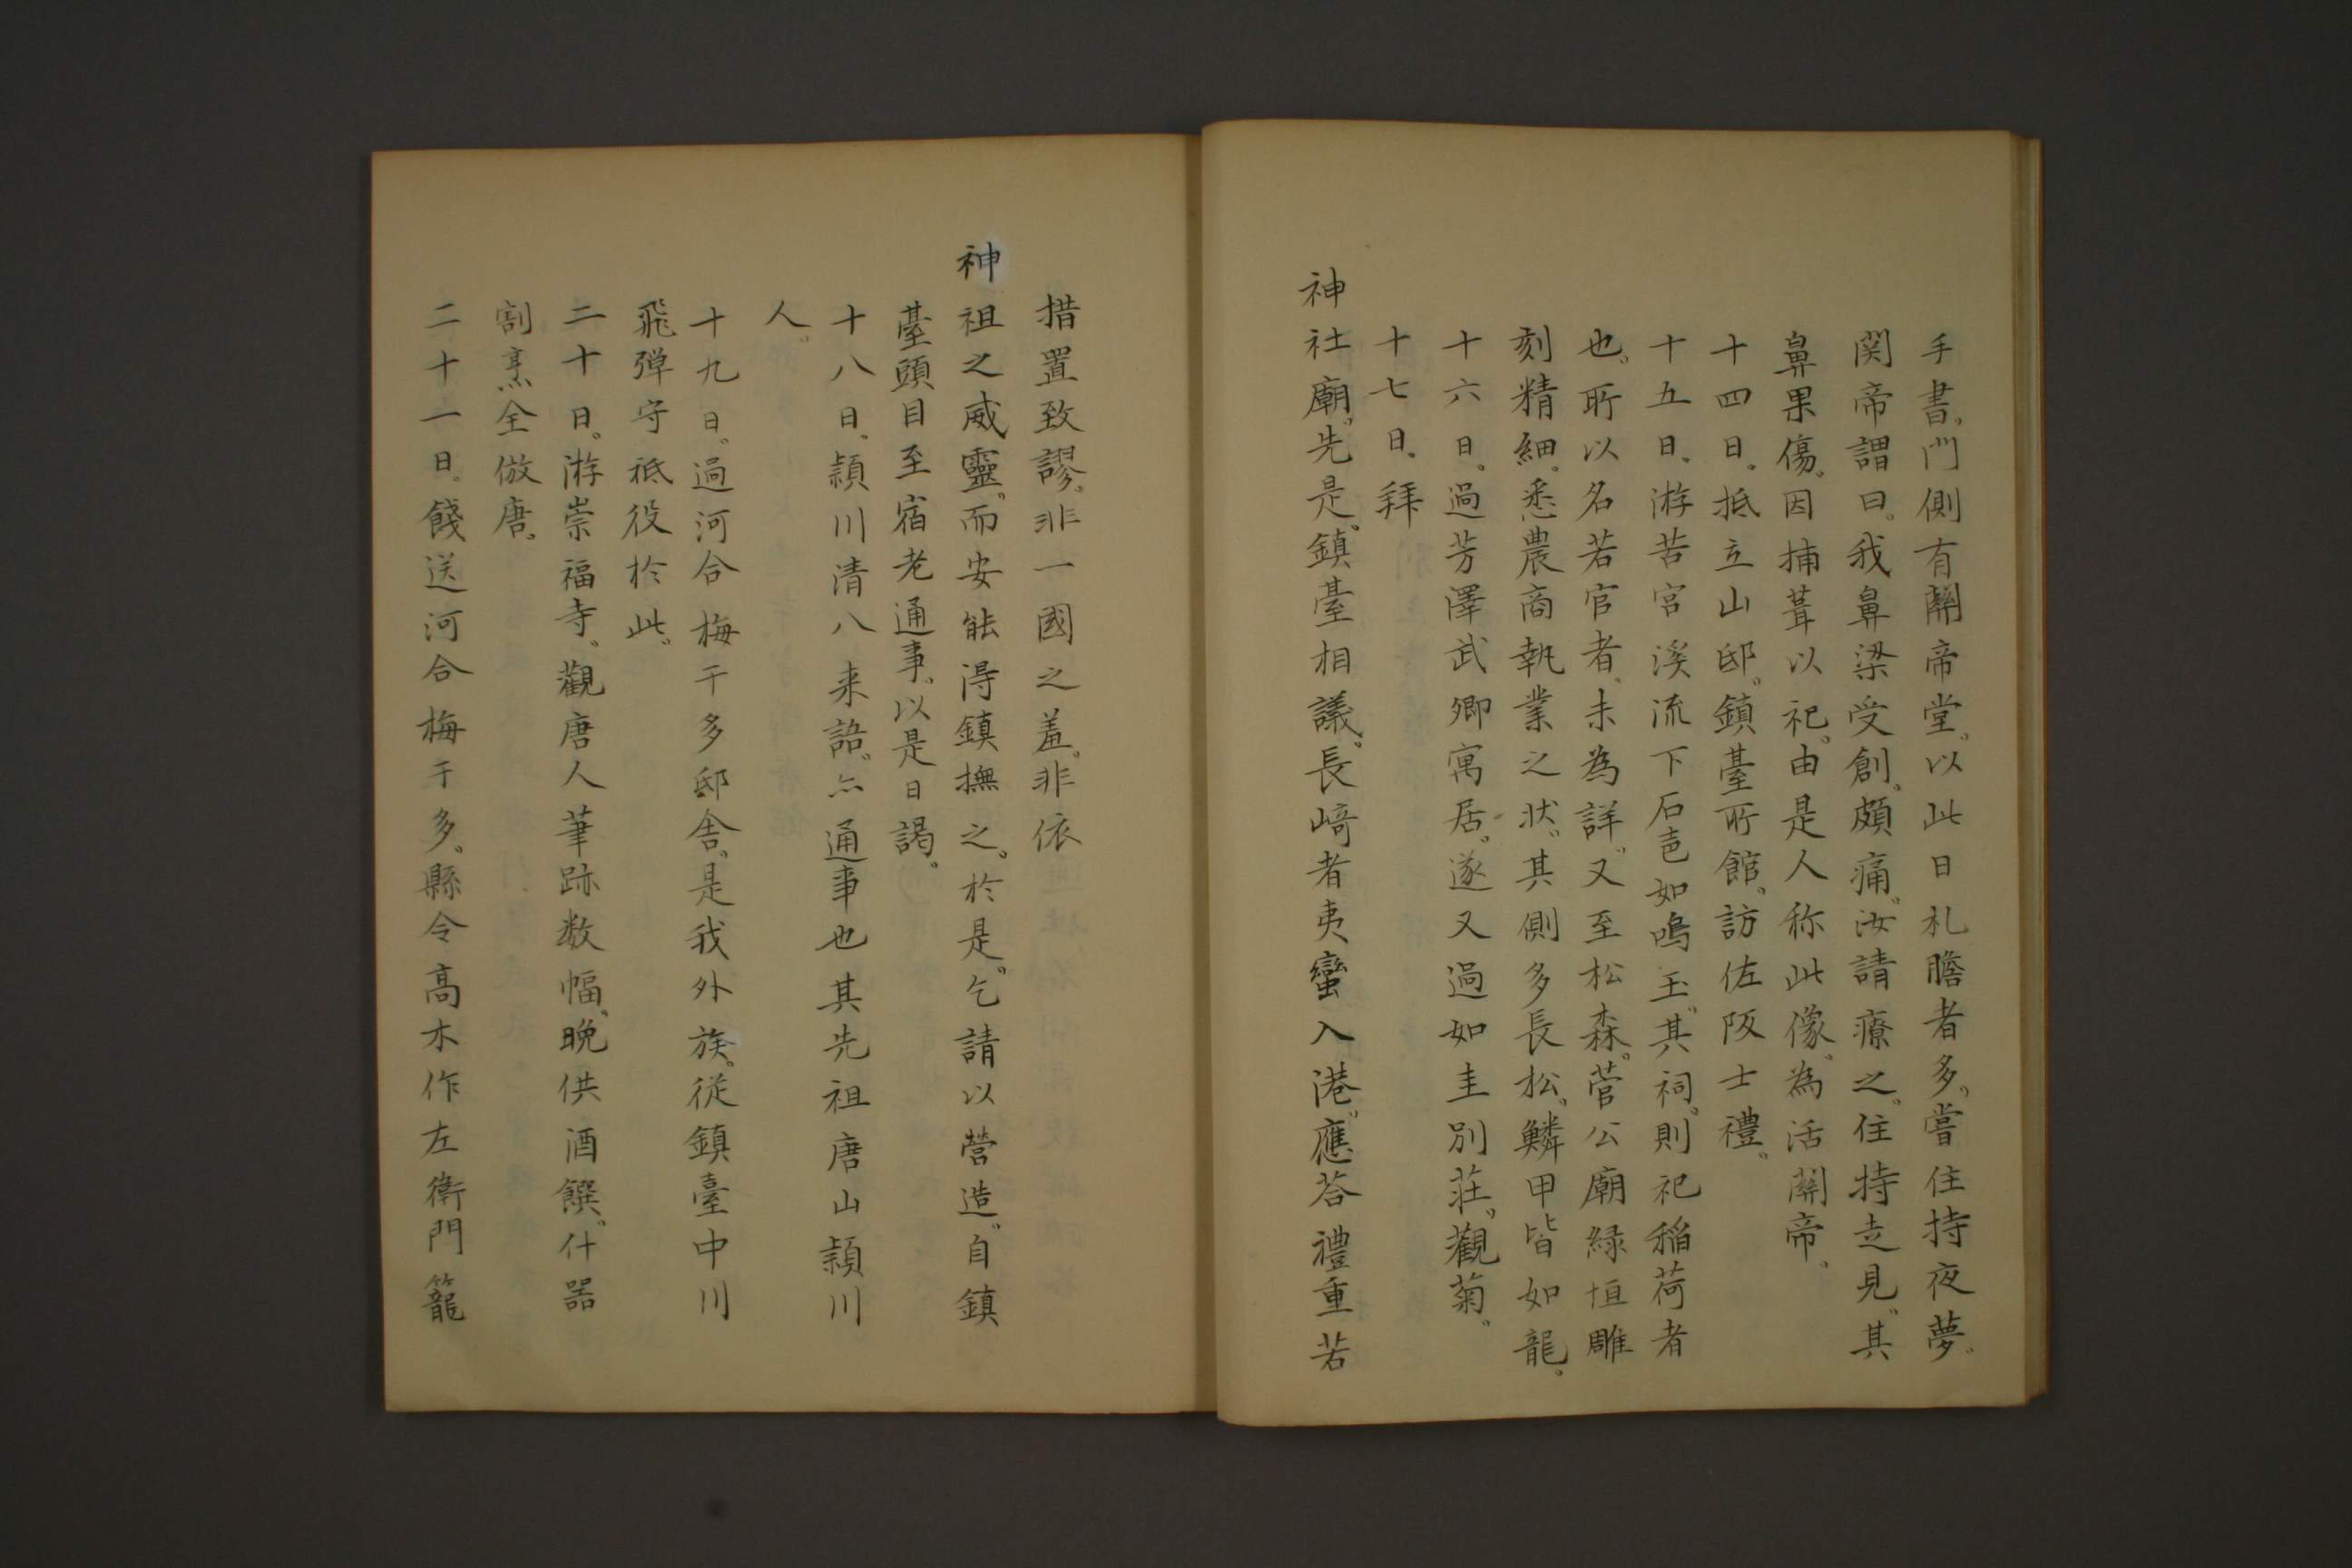 手書。門側有關帝堂。以此日札贍者多。嘗住持夜夢。
関帝謂曰。我鼻梁受創。頗痛。汝請療之。住持走見。其
鼻果傷。因捕葺以祀。由是人称此像。為活關帝。
十四日。抵立山邸。鎮臺所館。訪佐阪士禮。
十五日。游苦宮溪流下石㐖如鳴玉。其祠。則祀稲荷者
也。所以名若官者。未為詳。又至松森。菅公廟緑恒雕
刻精細。悉農商執業之状。其側多長松。鱗甲皆如龍。
十六日。過芳澤武卿寓居。遂又過如圭別荘。觀菊。
十七日。拜
神社廟。先是。鎮臺相議。長崎者夷蠻入港。應荅禮重若
措置致謬。非一國之羞。非依
神祖之威靈。而安能得鎮撫之。於是。乞請以營造。自鎮
臺頭目至宿老通事。以是日謁。
十八日。頴川清八来語。亦通事也其先祖唐山頴川
人。
十九日。過河合梅干多邸舎。是我外族。従鎮臺中川
飛弾守祇役於此。
二十日。游崇福寺。觀唐人筆跡数幅。晩供酒饌。什器
割烹全倣唐。
二十一日。餞送河合梅干多。縣令高木作左衛門籠